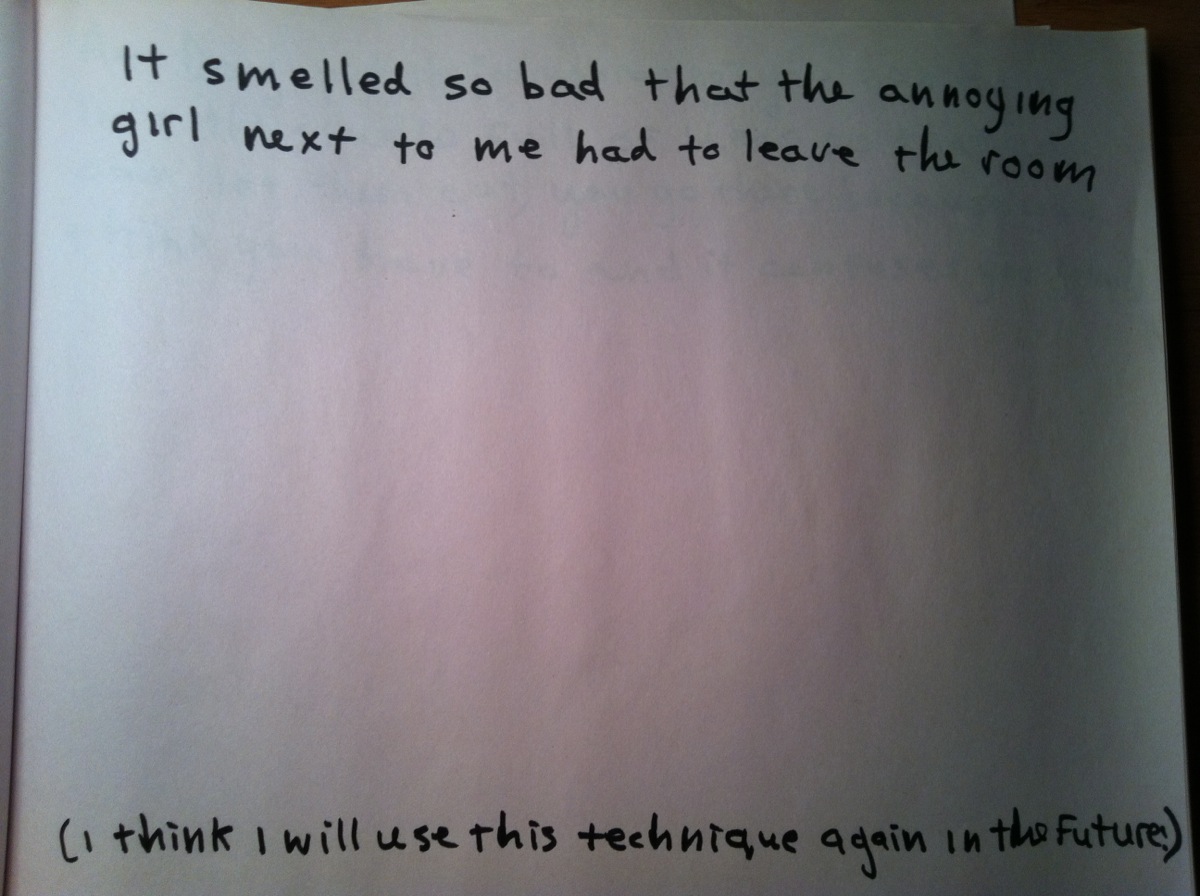 It smelled so bad that the annoying
girl next to me had to leave the room
(I think I will use this technique again in the Future!)